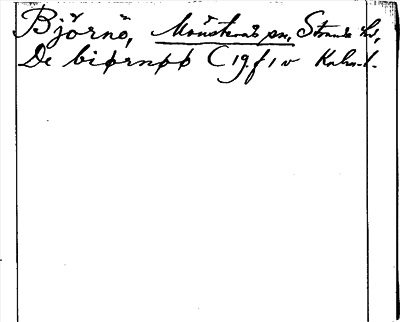 Björnö, Mönsterås sn, Stranda hd,
De biørnøø (19/1 v Kalm.l.